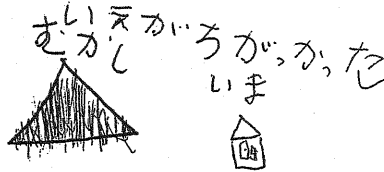 いえがちがっかった
むかし
いま